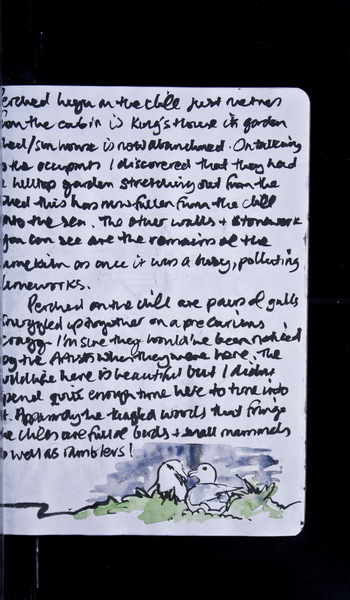 Perched high on the cliff just metres
from the cabin is King's House its garden
shed/sun house is now abandoned. On talking
to the occupants I discovered that they had
a hilltop garden stretching out from the
shed this has now fallen from the cliff
into the sea. The other walls + stonework
you can see are the remains of the
limekiln as once it was a busy, polluting
limeworks.
Perched on the cliff are pairs of gulls
snuggled up together on a precarious
craggy. I'm sure they would've been noticed
by the Artists when they were here. The
wildlife here is beautiful but I didn't
spend quite enough time here to tune into
it. Apparently the tangled woods that fringe
the cliffs are full of birds + small mammals
as well as ramblers!